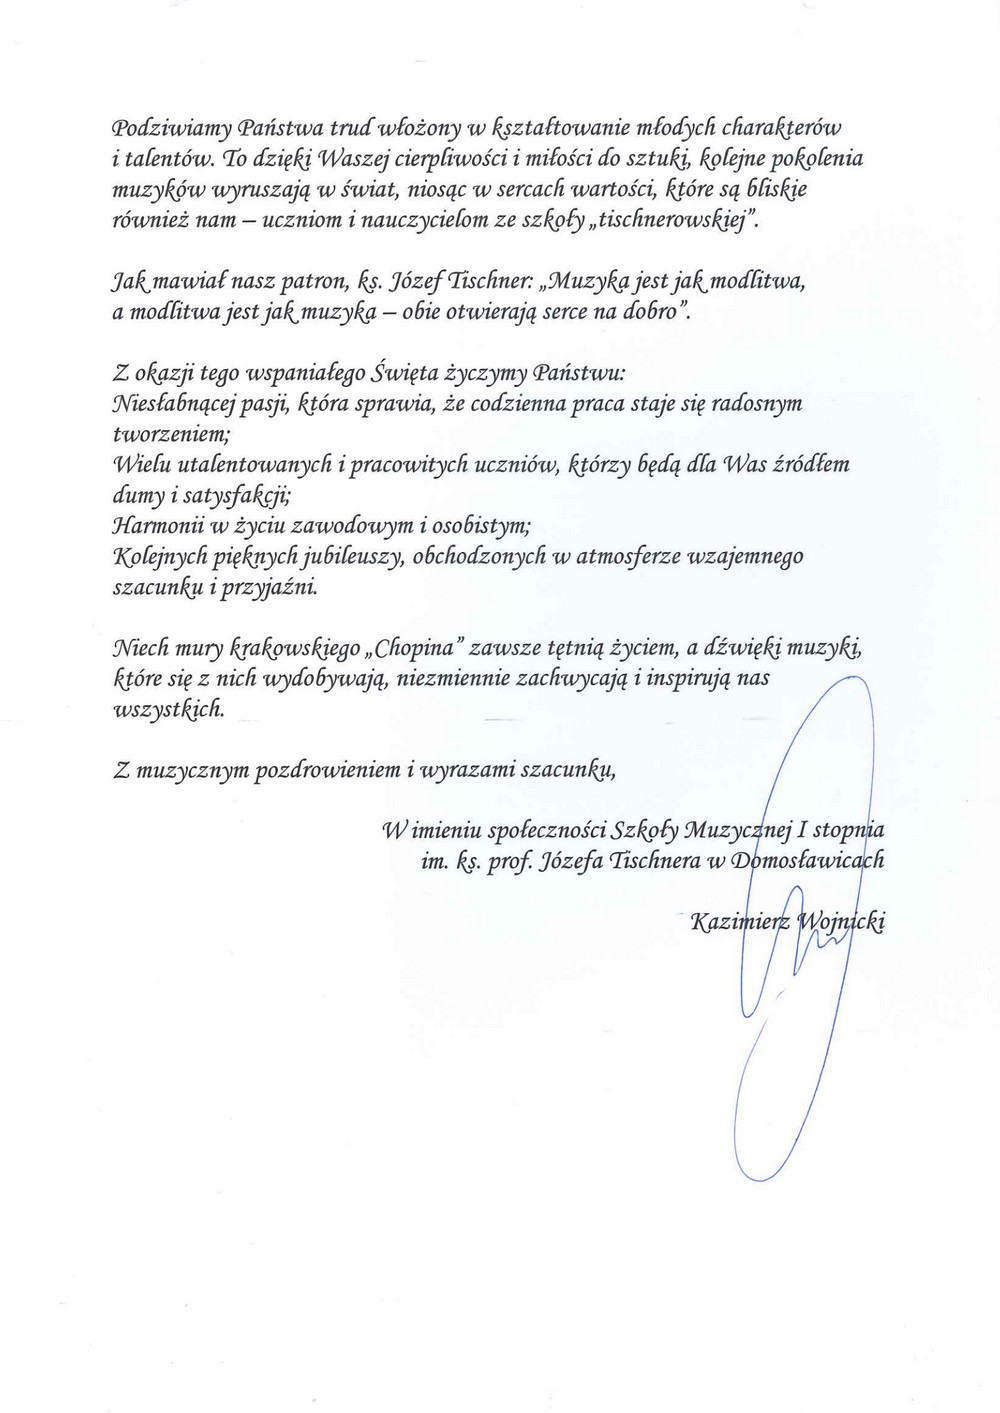 Podziwiamy Państwa trud włożony w kształtowanie młodych charakterów
i talentów. To dzięki Waszej cierpliwości i miłości do sztuki, kolejne pokolenia
muzyków wyruszają w świat, niosąc w sercach wartości, które są bliskie
również nam – uczniom i nauczycielom ze szkoły „tischnerowskiej”.
Jak mawiał nasz patron, ks. Józef Tischner: „Muzyka jest jak modlitwa,
a modlitwa jest jak muzyka – obie otwierają serce na dobro”.
Z okazji tego wspaniałego Święta życzymy Państwu:
Niesłabnącej pasji, która sprawia, że codzienna praca staje się radosnym
tworzeniem;
Wielu utalentowanych i pracowitych uczniów, którzy będą dla Was źródłem
dumy i satysfakcji;
Harmonii w życiu zawodowym i osobistym;
Kolejnych pięknych jubileuszy, obchodzonych w atmosferze wzajemnego
szacunku i przyjaźni.
Niech mury krakowskiego „Chopina” zawsze tętnią życiem, a dźwięki muzyki,
które się z nich wydobywają, niezmiennie zachwycają i inspirują nas
wszystkich.
Z muzycznym pozdrowieniem i wyrazami szacunku,
W imieniu społeczności Szkoły Muzycznej I stopnia
im. ks. prof. Józefa Tischnera w Domosławicach
Kazimierz Wojnicki